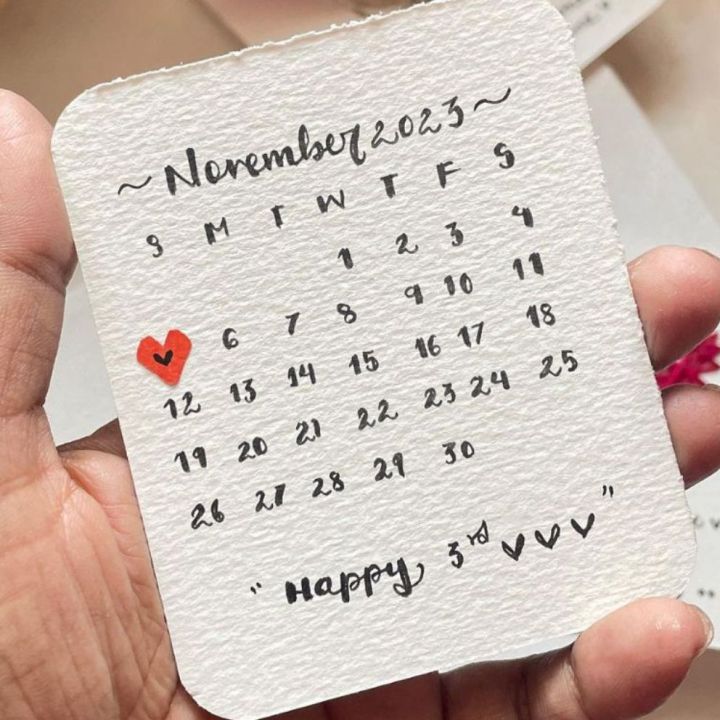 ~ November 2023 ~
S M T W T F S
1 2 3 4
6 7 8 9 10 11
12 13 14 15 16 17 18
19 20 21 22 23 24 25
26 27 28 29 30
" Happy 3rd ♥♥♥ "